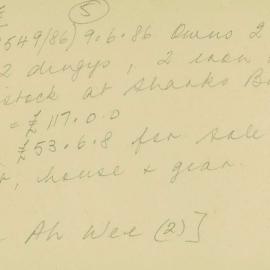 £ (5)
549/86) 9.6.86 Owns 2
2 dingys, 2 iron
stock at Shanks B
= £117.0.0
£53.6.8 for sale
, house + gear.
Ah Wee (2)]